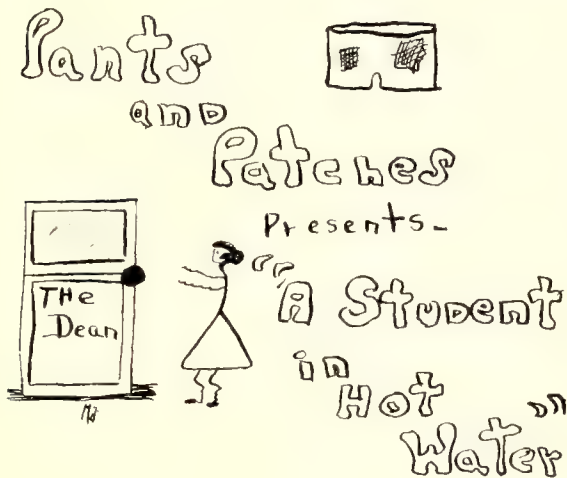 Pants
and
Patches
Presents-
"A Student
in
Hot
Water"
THe
Dean